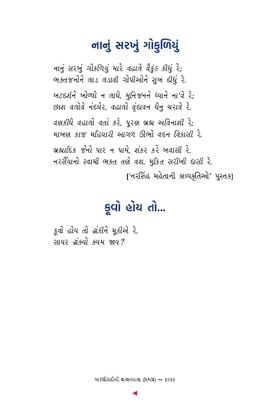 નાનું સરખું ગોકુળિયું
નાનું સરખું ગોકળિયું મારે વહાલે વૈકુંઠ કીધું રે;
ભક્તજનોને લાડ લડાવી ગોપીઓને સુખ દીધું રે.
ખટદર્શને ખોળ્યો ન લાધે, મુનિજનને ધ્યાને ના'વે રે;
છાશ વલોવે નંદઘેર, વહાલો વૃંદાવન ધેનુ ચરાવે રે.
વણકીધે વહાલો વાતાં કરે, પૂરણ બ્રહ્મ અવિનાશી રે;
માખણ કાજ મહિયારી આગળ ઊભો વદન વિકાસી રે.
બ્રહ્માદિક જેનો પાર ન પામે, શંકર કરે ખવાસી રે.
નરસૈંયાનો સ્વામી ભક્ત તણે વશ, મુક્તિ સરીખી દાસી રે.
['નરસિંહ મહેતાની કાવ્યકૃતિઓ' પુસ્તક]
કૂવો હોય તો...
કૂવો હોય તો ઢાંકીને મૂકીએ રે.
સાયર ઢાંક્યો ક્યમ જાય?
અરધીસદીની વાચનયાત્રા